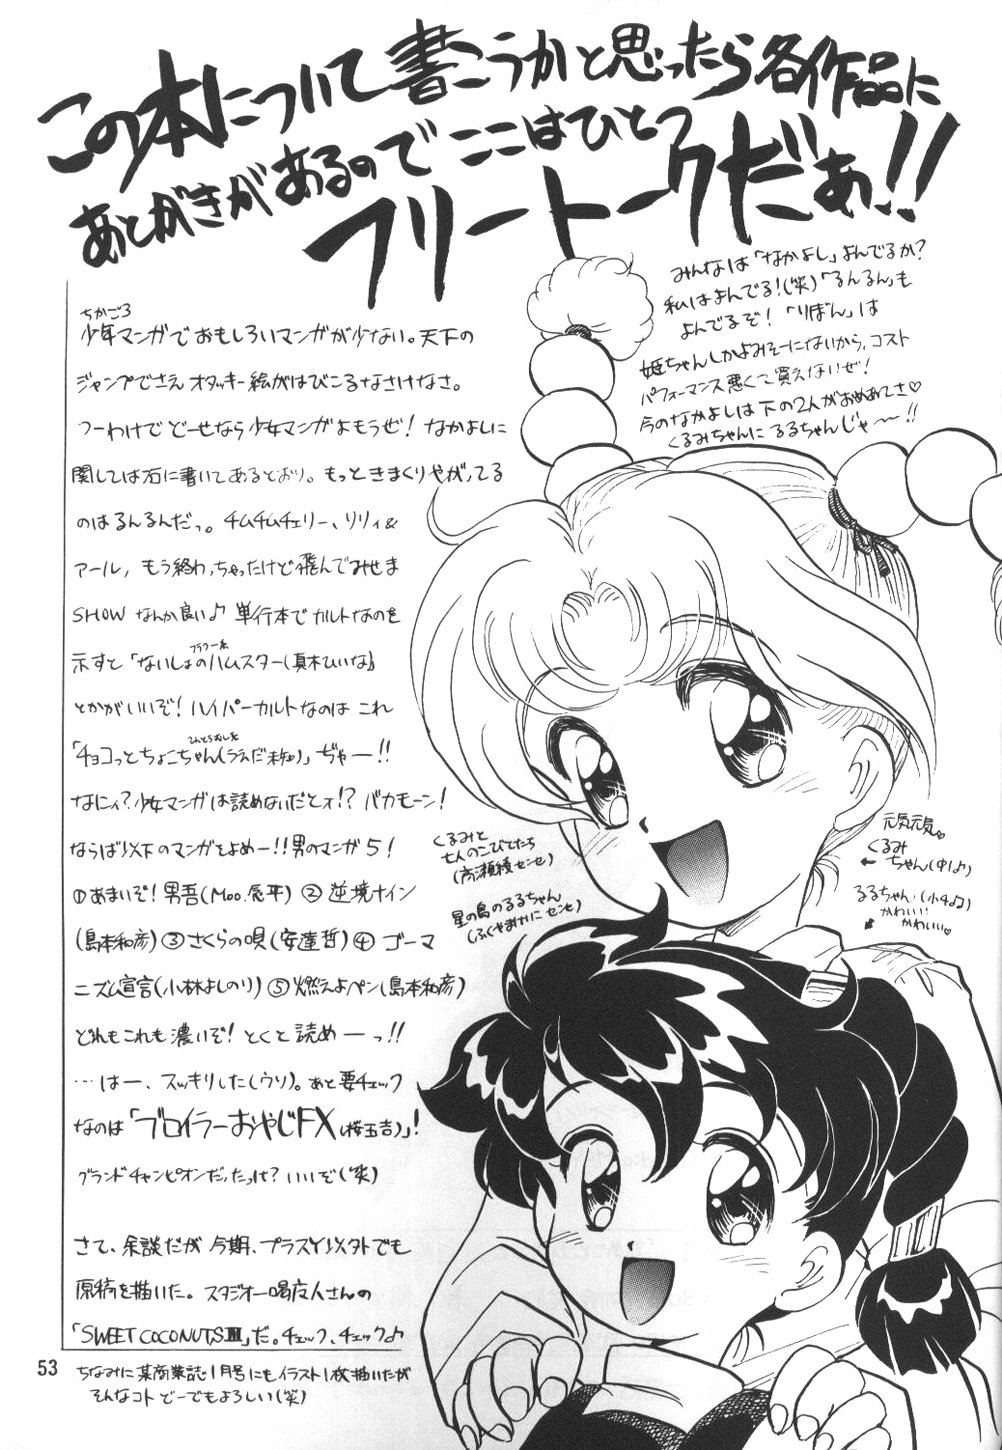 この本について書こうかと思ったら各作品に
あとがきがあるのでここはひとつ
フリートークだぁ!!
みんなは「なかよし」よんでるか?
私はよんでる!(笑)「るんるん」も
よんでるぞ!「りぼん」は
姫ちゃんしかよみそーにないから、コスト
パフォーマンス悪くて買えないぜ!
今のなかよしは下の2人がおめあてさ♡
くるみちゃんにるるちゃんじゃ〜〜!!
ちかごろ
少年マンガでおもしろいマンガが少ない。天下の
ジャンプでさえオタッキー絵がはびこるなさけなさ。
つーわけでどーせなら少女マンガよもうぜ!なかよしに
関しては右に書いてあるとおり。もっときまくりやがってる
のはるんるんだっ。チムチムチェリー、リリィ&
アール,もう終わっちゃったけど飛んでみせま
SHOWなんか良い♪単行本でカルトなのを
示すと「ないしょのハムスター(真木ひいな)」
とかがいいぞ!ハイパーカルトなのはこれ
「チョコっとちょこちゃん」ぢゃー!!
なにィ?少女マンガは読めないだとォ!?バカモーン!
ならば以下のマンガをよめー!!男のマンガ5!
①あまいぞ!男吾(Moo.念平)②逆境ナイン
(島本和彦)③さくらの唄(安達哲)④ゴーマ
ニズム宣言(小林よしのり)⑤燃えよペン(島本和彦)
どれもこれも濃いぞ!とくと読めーっ!!
…はー、スッキリした(ウソ)。あと要チェック
なのは「ブロイラーおやじFX(桜玉吉)」!
グランドチャンピオンだったっけ?いいぞ(笑)
さて、余談だが今期、プラスY以外でも
原稿を描いた。スタジオ一喝友人さんの
「SWEET COCONUTSⅢ」だ。チェック、チェック♪
ちなみに某商業誌1月号にもイラスト1枚描いたが
そんなコトどーでもよろしい(笑)
くるみと
七人のこびとたち
(高瀬綾センセ)
星の島のるるちゃん
(ふくやまけいこセンセ)
元気元気♡
くるみ
←ちゃん(中1♪)
るるちゃん(小4♪)
かわいい
かわいい♡
53